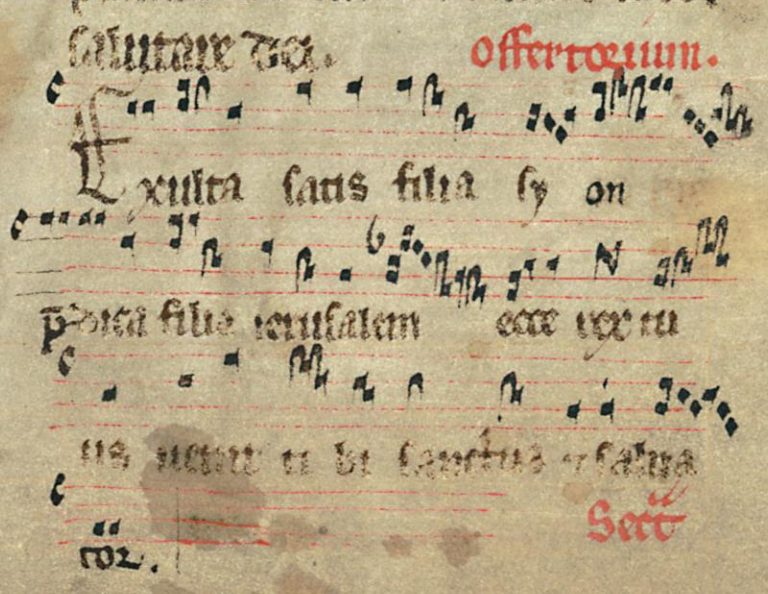 salutare dei. offertorium.
Exulta satis filia sy on
p̄dica filia ierusalem ecce rex tu
us uenit ti bi sanctus ⁊ salua
tor. Sect̄